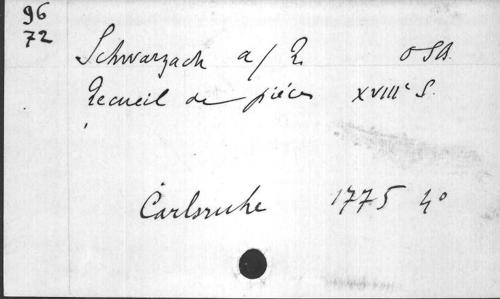 96
72
Schwarzach a/R. OSB.
Recueil de pièces XVIIIe S.
Carlsruhe 1775 4°